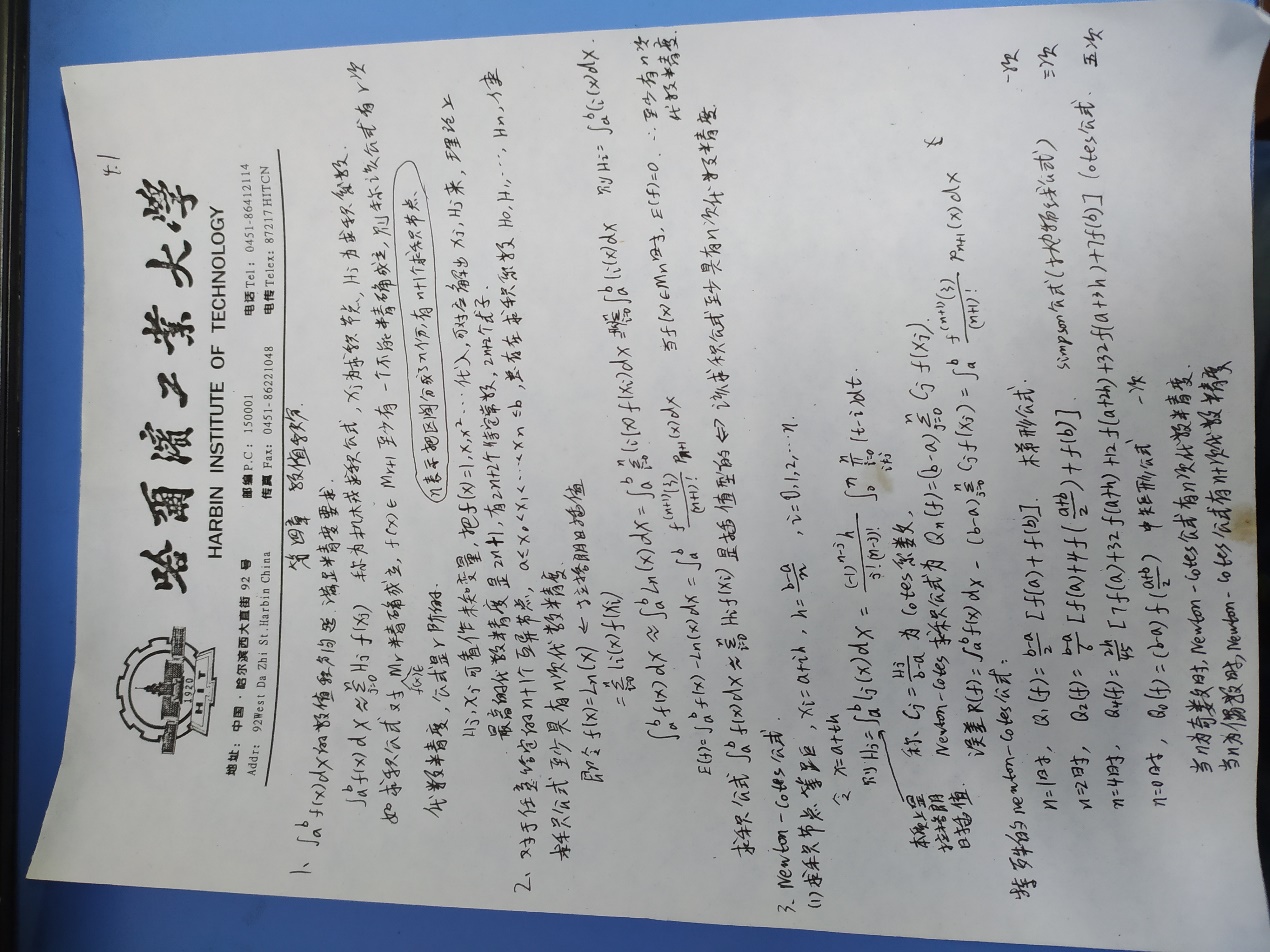 4.1
1920
HIT
哈爾濱工業大學
HARBIN INSTITUTE OF TECHNOLOGY
地址：中国·哈尔滨西大直街 92 号 邮编 P.C： 150001 电话 Tel： 0451-86412114
Addr： 92West Da Zhi St.Harbin China 传真 Fax： 0451-86221048 电传 Telex： 87217 HITCN
第四章 数值积分
1、∫_a^b f(x)dx 的数值积分构造, 满足精度要求.
∫_a^b f(x)dx ≈ Σ_{j=0}^n Hj f(xj) 称为机械求积公式, xj为求积节点, Hj为求积系数.
如求积公式对 Mr 精确成立, f(x)∈Mr+1 至少有一个不能精确成立, 则称该公式有r次
f(x)∈
代数精度, 公式是r阶的.
n表示把区间分成了n份, 有n+1个求积节点.
Hj, xj 可看作未知变量, 把f(x)=1, x, x²…代入, 可对应解出 xj, Hj 来, 理论上
最高的代数精度是2n+1, 有2n+2个待定常数, 2n+2个式子.
2、对于任意给定的n+1个互异节点, a≤x0<x1<…<xn≤b, 总存在求积系数 H0, H1, …, Hn, 使
求积公式至少具有n次代数精度.
即令 f(x)=Ln(x) ← 拉格朗日插值
=Σ_{i=0}^n li(x)f(xi)
∫_a^b f(x)dx ≈ ∫_a^b Ln(x)dx = ∫_a^b Σ_{i=0}^n li(x)f(xi)dx = ∫_a^b li(x)dx 则Hi=∫_a^b li(x)dx.
E(f)=∫_a^b f(x)-Ln(x)dx = ∫_a^b f^{(n+1)}(ξ)/(n+1)! Pn+1(x)dx 当f(x)∈Mn时, E(f)=0. ∴至少有n次
代数精度.
求积公式 ∫_a^b f(x)dx≈Σ_{i=0}^n Hif(xi) 是插值型的⇔该求积公式至少具有n次代数精度.
3、Newton-Cotes公式.
(1)求积节点等距, xi=a+ih, h=(b-a)/n, i=0,1,2,…n.
令 x=a+th
则 Hj=∫_a^b lj(x)dx = (-1)^{n-j}h/j!(n-j)! ∫_0^n Π_{i=0, i≠j}^n (t-i)dt.
本质上是
拉格朗
日插值.
称 Cj=Hj/(b-a) 为 Cotes系数,
Newton-Cotes 求积公式为 Qn(f)=(b-a)Σ_{j=0}^n Cj f(xj).
误差R(f)=∫_a^b f(x)dx - (b-a)Σ_{j=0}^n Cjf(xj) = ∫_a^b f^{(n+1)}(ξ)/(n+1)! Pn+1(x)dx
特殊的newton-cotes公式:
n=1时, Q1(f)=(b-a)/2 [f(a)+f(b)]. 梯形公式. 一次
n=2时, Q2(f)=(b-a)/6 [f(a)+4f((a+b)/2)+f(b)]. Simpson公式(抛物线公式) 三次
n=4时, Q4(f)=2h/45 [7f(a)+32f(a+h)+12f(a+2h)+32f(a+3h)+7f(b)] Cotes公式. 五次
n=0时, Q0(f)=(b-a)f((a+b)/2) 中矩形公式 一次
当n为奇数时, Newton-Cotes公式有n次代数精度.
当n为偶数时, Newton-Cotes公式有n+1次代数精度